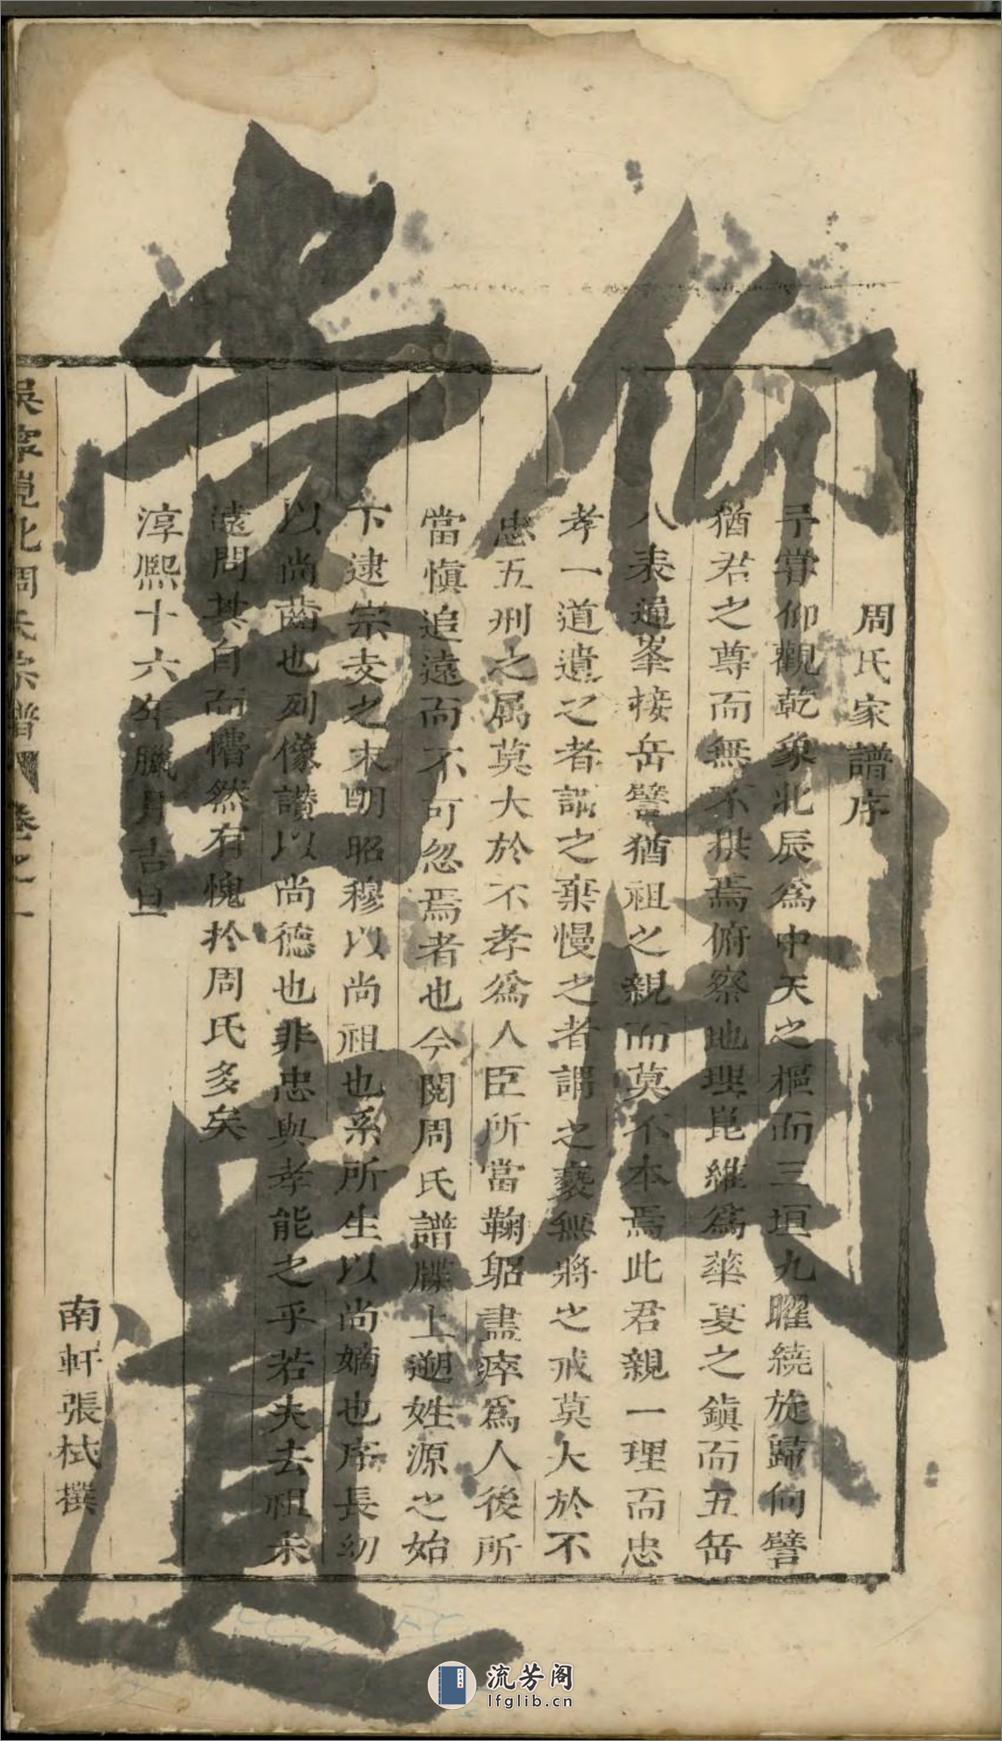 周氏家譜序
予嘗仰觀乾象北辰爲中天之樞而三垣九曜繞旋歸向譬
猶君之尊而無不拱焉俯察地理崑維爲華夏之鎮而五岳
八表通峯接岳譬猶祖之親而莫不本焉此君親一理而忠
孝一道遺之者謂之棄慢之者謂之褻無將之戒莫大於不
忠五刑之属莫大於不孝爲人臣所當鞠躬盡瘁爲人後所
當慎追遠而不可忽焉者也今閱周氏譜牒上遡姓源之始
下逮宗支之末明昭穆以尚祖也系所生以尚嫡也序長幼
以尚齒也列像讃以尚德也非忠與孝能之乎若夫去祖未
遠問其自而懵然有愧於周氏多矣
淳熙十六年臘月吉旦
南軒張栻撰
吳寧北周氏宗譜 卷之一
仰周
流芳阁
lfglib.cn